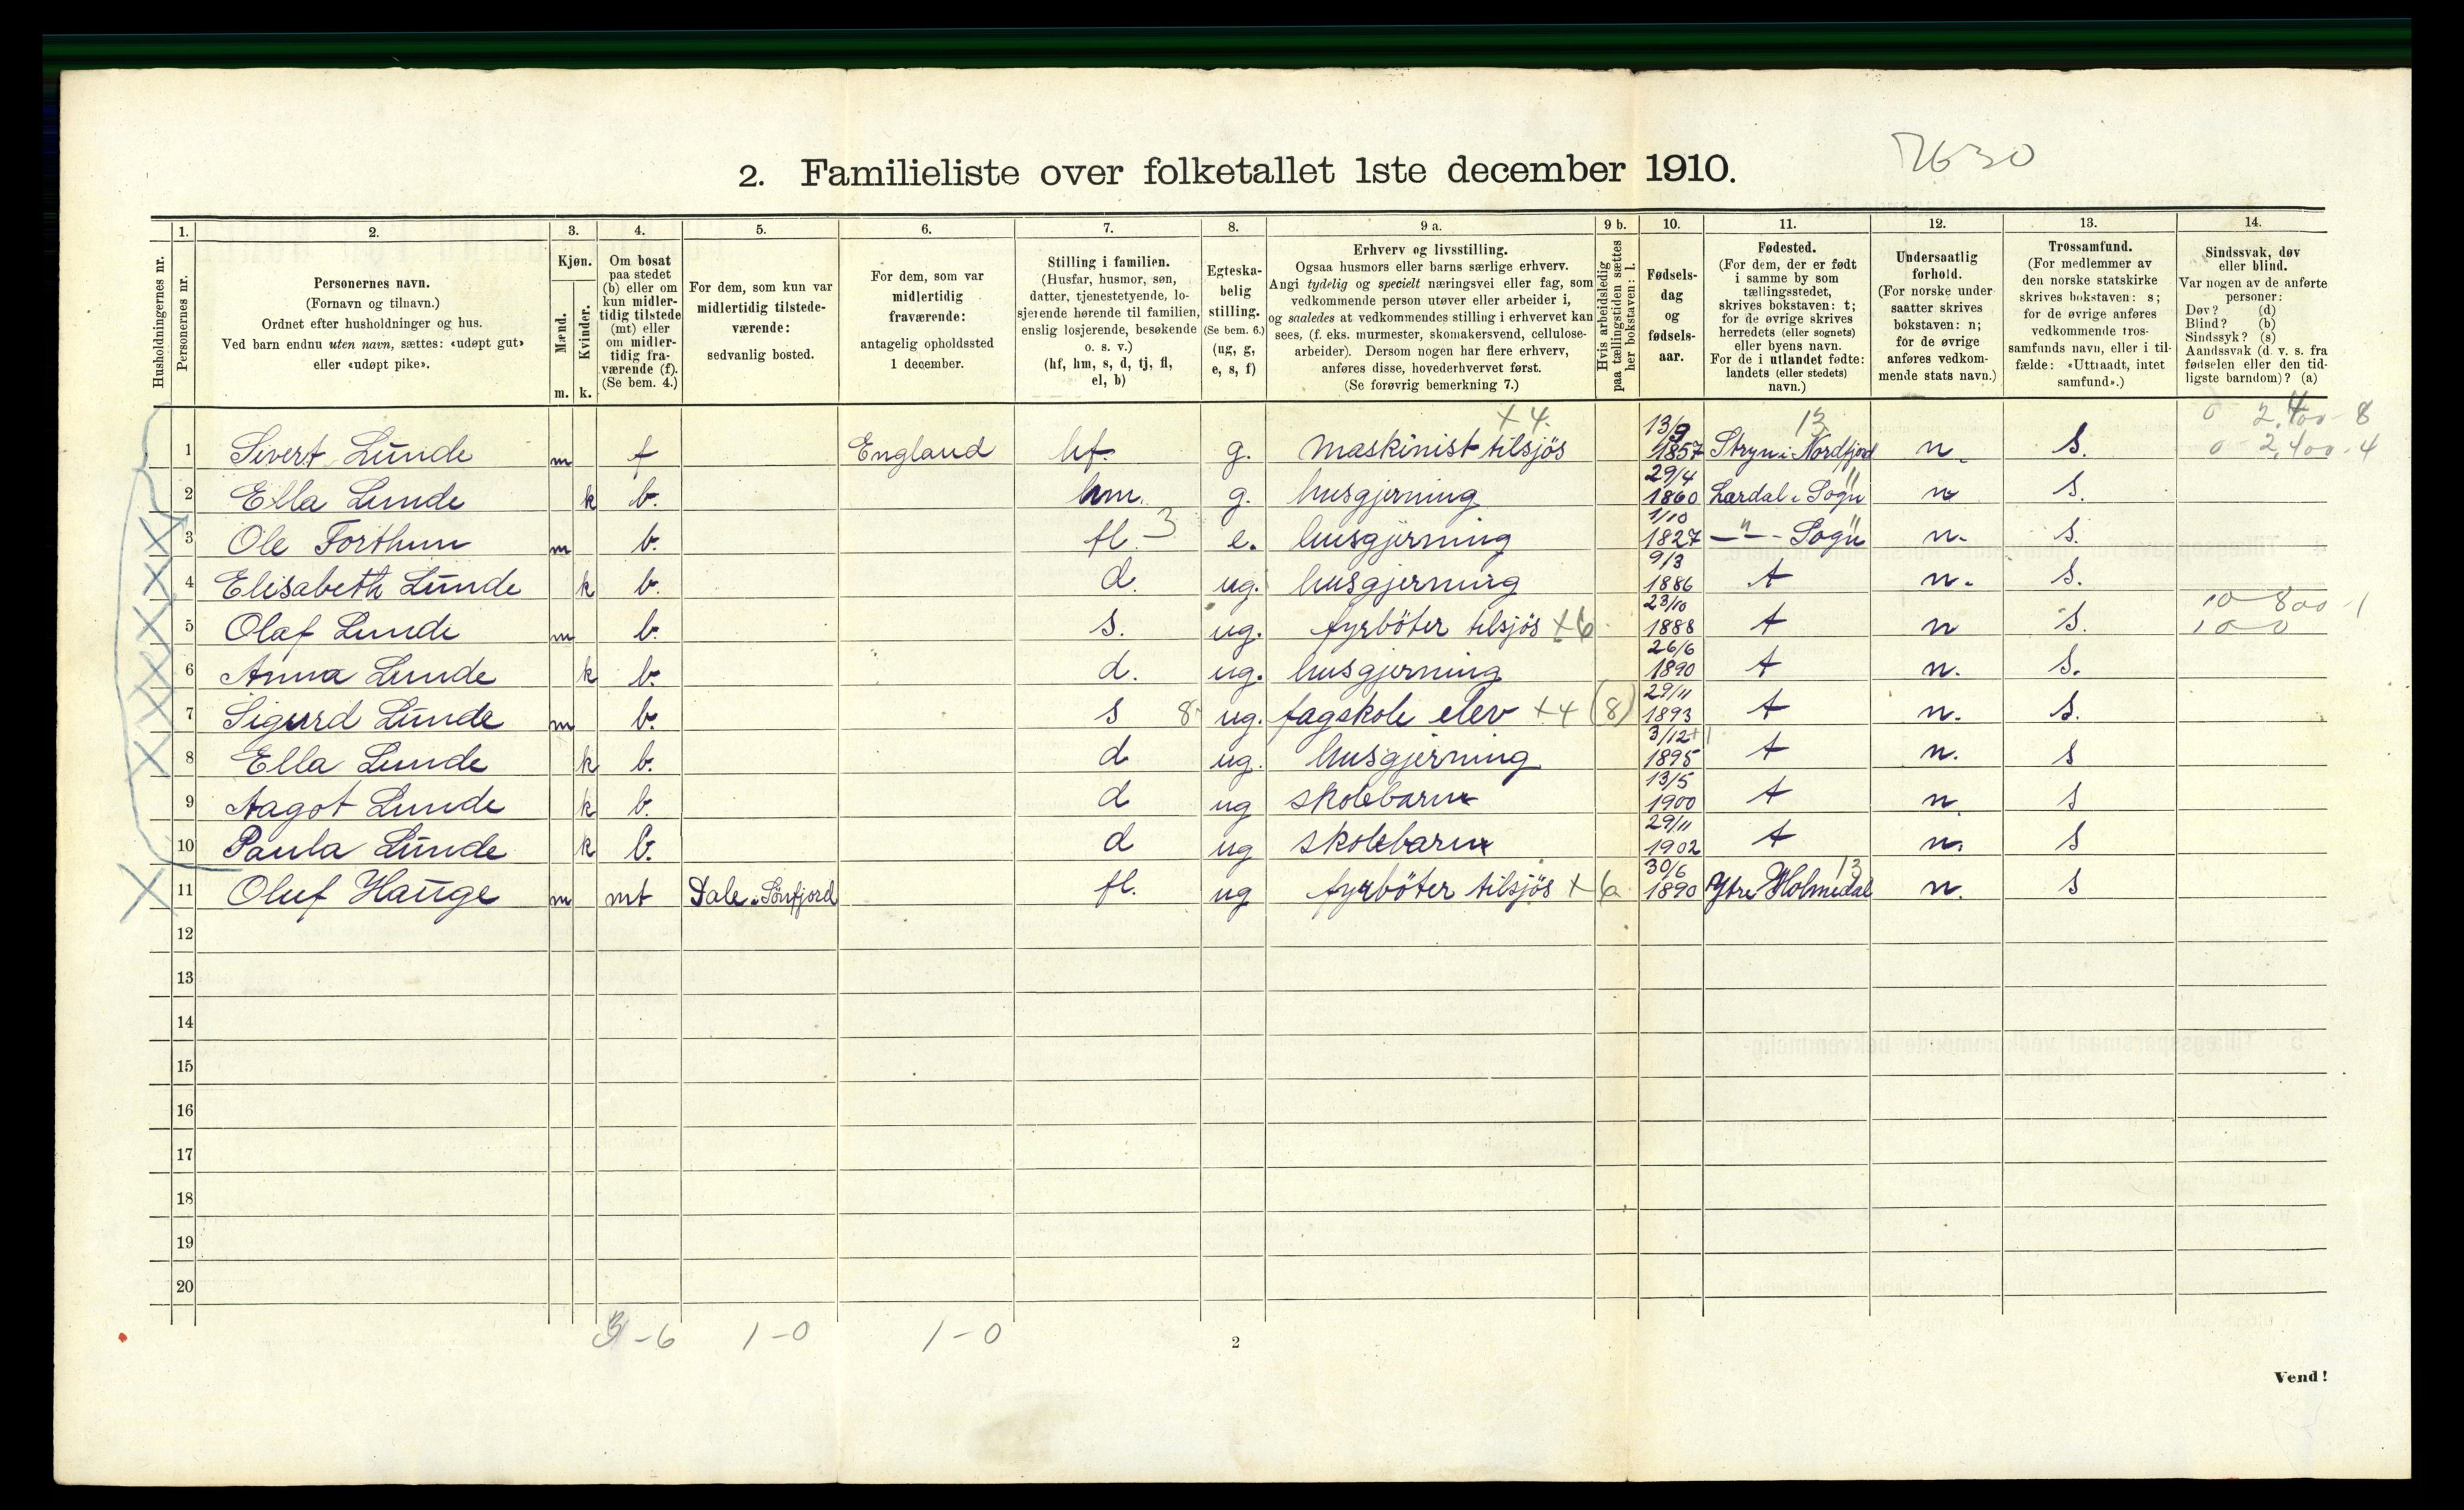 7630
2. Familieliste over folketallet 1ste december 1910.
1. 2. 3. 4. 5. 6. 7. 8. 9 a. 9 b. 10. 11. 12. 13. 14.
Husholdningernes nr.
Personernes nr.
Personernes navn.
(Fornavn og tilnavn.)
Ordnet efter husholdninger og hus.
Ved barn endnu uten navn, sættes: «udøpt gut»
eller «udøpt pike».
Kjøn.
Mænd.
Kvinder.
m. k.
Om bosat
paa stedet
(b) eller om
kun midler-
tidig tilstede
(mt) eller
om midler-
tidig fra-
værende (f).
(Se bem. 4.)
For dem, som kun var
midlertidig tilstede-
værende:
sedvanlig bosted.
For dem, som var
midlertidig
fraværende:
antagelig opholdssted
1 december.
Stilling i familien.
(Husfar, husmor, søn,
datter, tjenestetyende, lo-
sjerende hørende til familien,
enslig losjerende, besøkende
o. s. v.)
(hf, hm, s, d, tj, fl,
el, b)
Egteska-
belig
stilling.
(Se bem. 6.)
(ug, g,
e, s, f)
Erhverv og livsstilling.
Ogsaa husmors eller barns særlige erhverv.
Angi tydelig og specielt næringsvei eller fag, som
vedkommende person utøver eller arbeider i,
og saaledes at vedkommendes stilling i erhvervet kan
sees, (f. eks. murmester, skomakersvend, cellulose-
arbeider). Dersom nogen har flere erhverv,
anføres disse, hovederhvervet først.
(Se forøvrig bemerkning 7.)
Hvis arbeidsledig
paa tællingstiden sættes
her bokstaven: l.
Fødsels-
dag
og
fødsels-
aar.
Fødested.
(For dem, der er født
i samme by som
tællingsstedet,
skrives bokstaven: t;
for de øvrige skrives
herredets (eller sognets)
eller byens navn.
For de i utlandet fødte:
landets (eller stedets)
navn.)
Undersaatlig
forhold.
(For norske under-
saatter skrives
bokstaven: n;
for de øvrige
anføres vedkom-
mende stats navn.)
Trossamfund.
(For medlemmer av
den norske statskirke
skrives bokstaven: s;
for de øvrige anføres
vedkommende tros-
samfunds navn, eller i til-
fælde: «Uttraadt, intet
samfund».)
Sindssvak, døv
eller blind.
Var nogen av de anførte
personer:
Døv? (d)
Blind? (b)
Sindssyk? (s)
Aandssvak (d. v. s. fra
fødselen eller den tid-
ligste barndom)? (a)
+4. 13/9 13 0 2,400-8
1 Sivert Lunde m f England hf. g. Maskinist tilsjös 1857 Stryn i Nordfjord n. S. 0 2,400-4
29/4 "
2 Ella Lunde k b. hm. g. husgjerning 1860 Lardal i Sogn n S.
1/10 "
3 Ole Forthun m b. fl. 3 e. husgjerning 1827 —"— Sogn n. S.
9/3
4 Elisabeth Lunde k b. d. ug. husgjerning 1886 t n. S.
23/10 10 800-1
5 Olaf Lunde m b. s. ug. fyrböter tilsjös +6 1888 t n S. 100
26/6
6 Anna Lunde k b. d. ug. husgjerning 1890 t n. S.
29/11
7 Sigurd Lunde m b. s 8 ug. fagskole elev +4 (8) 1893 t n. S.
3/12
8 Ella Lunde k b. d ug. husgjerning 1895 t n. S
13/5
9 Aagot Lunde k b. d ug skolebarn 1900 t n. S
29/11
10 Paula Lunde k b. d ug skolebarn 1902 t n. S
30/6 13
11 Oluf Hauge m mt Dale i Sönfjord fl. ug fyrböter tilsjös +6a 1890 Ytre Holmedal n. S
12
13
14
15
16
17
18
19
20
3-6 1-0 1-0
2
Vend!